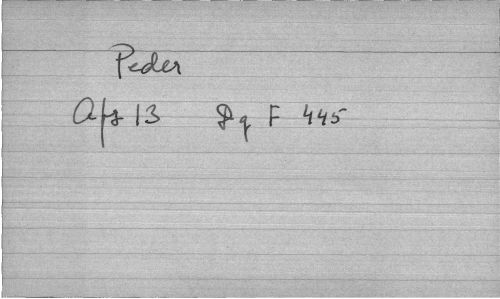 Peder
Afs 13 Dq F 445